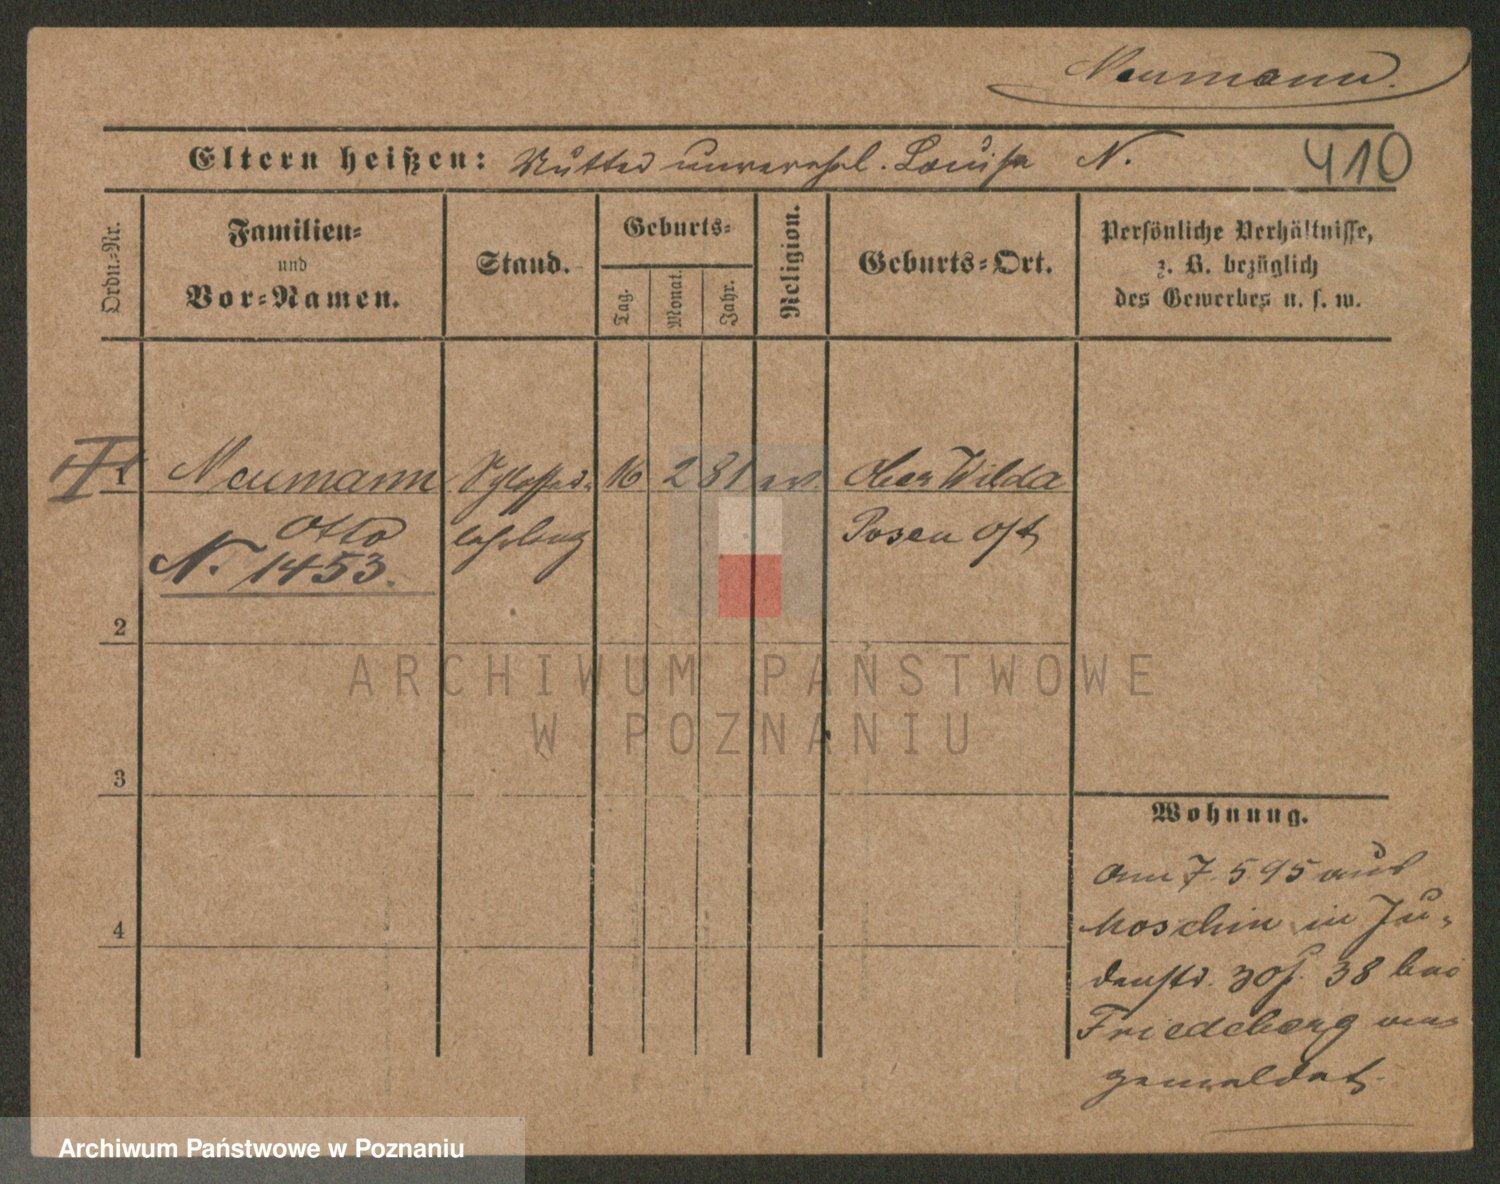 Neumann.
Eltern heißen: Mutter unverehel. Louise N. 410
Ordn.-Nr.
Familien-
und
Vor-Namen.
Stand.
Geburts-
Tag.
Monat.
Jahr.
Religion.
Geburts-Ort.
Persönliche Verhältnisse,
z. B. bezüglich
des Gewerbes u. s. w.
1 Neumann Schlosser- 16 2 81 ev. Ober Wilda
Otto lehrling Posen Ost
N. 1453.
2
3
4
Wohnung.
am 7. 5 95 aus
Moschin in Ju-
denstr. 38 bei
Friedeberg
gemeldet
ARCHIWUM PAŃSTWOWE
W POZNANIU
Archiwum Państwowe w Poznaniu